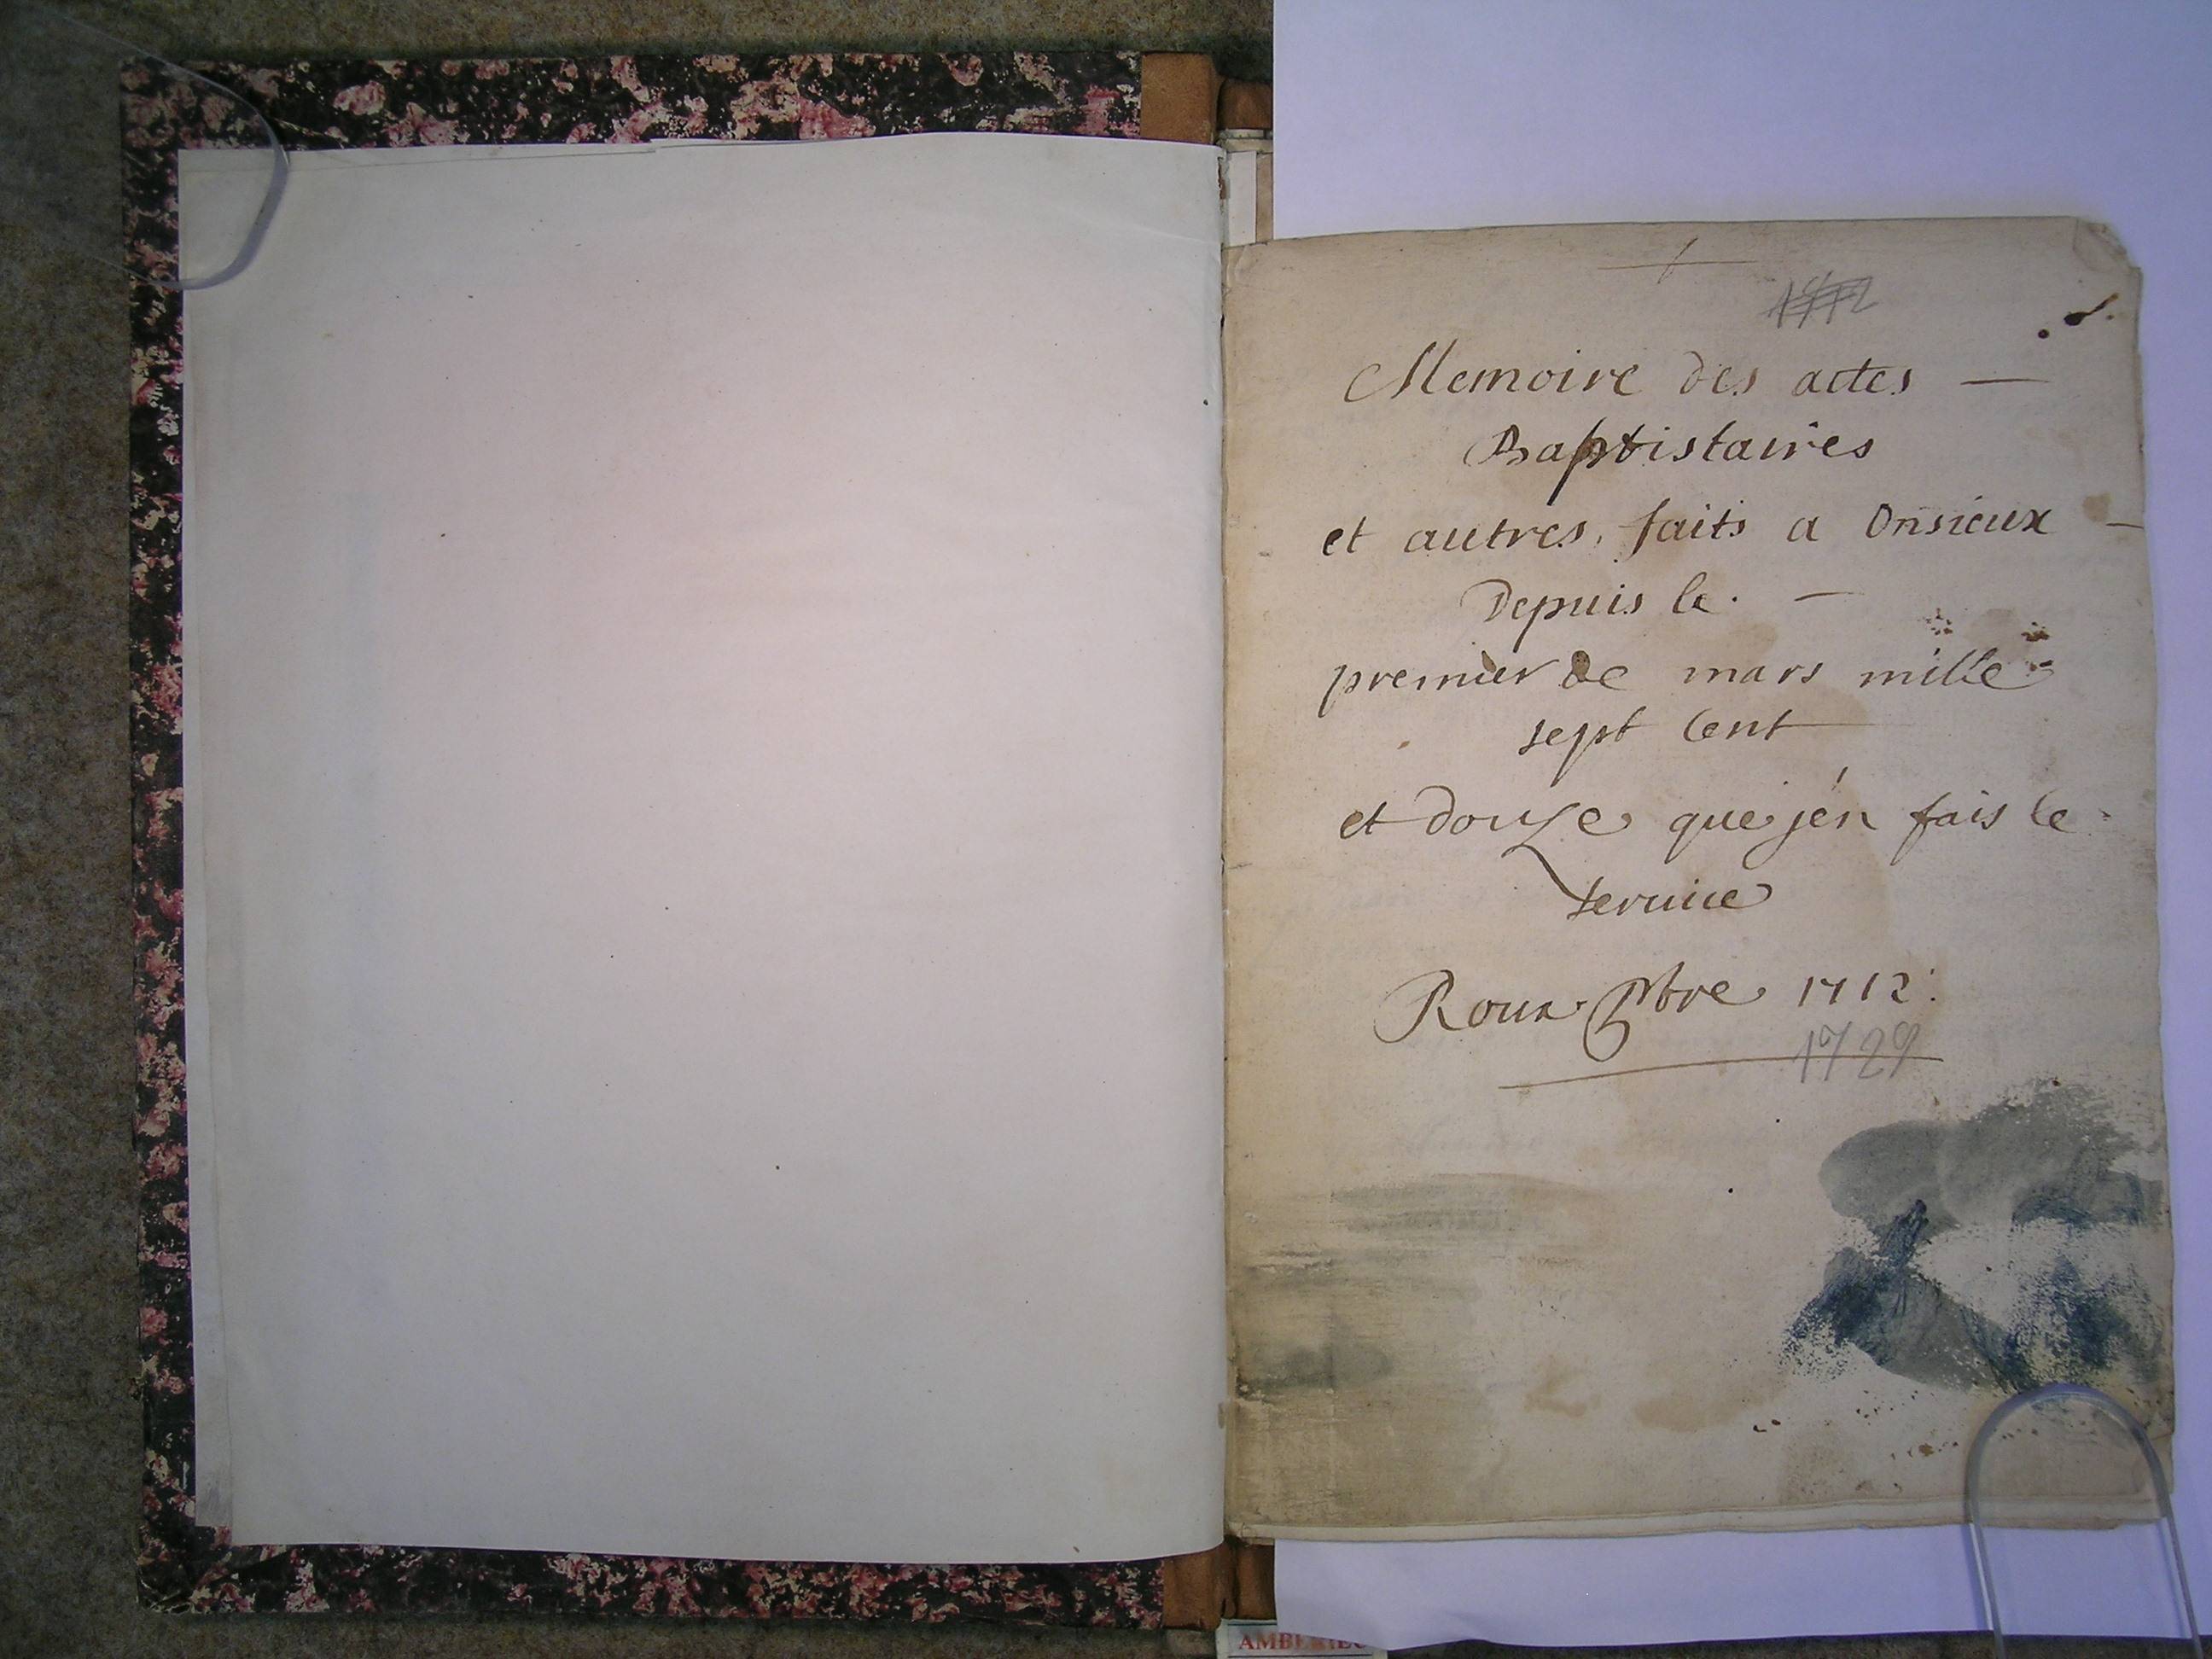 1712
Memoire des actes —
Baptistaires
et autres, faits a Onsieux —
Depuis le. —
premier de mars mille
sept Cent
et douze que j'en fais le
service
Roux pbre 1712.
1729